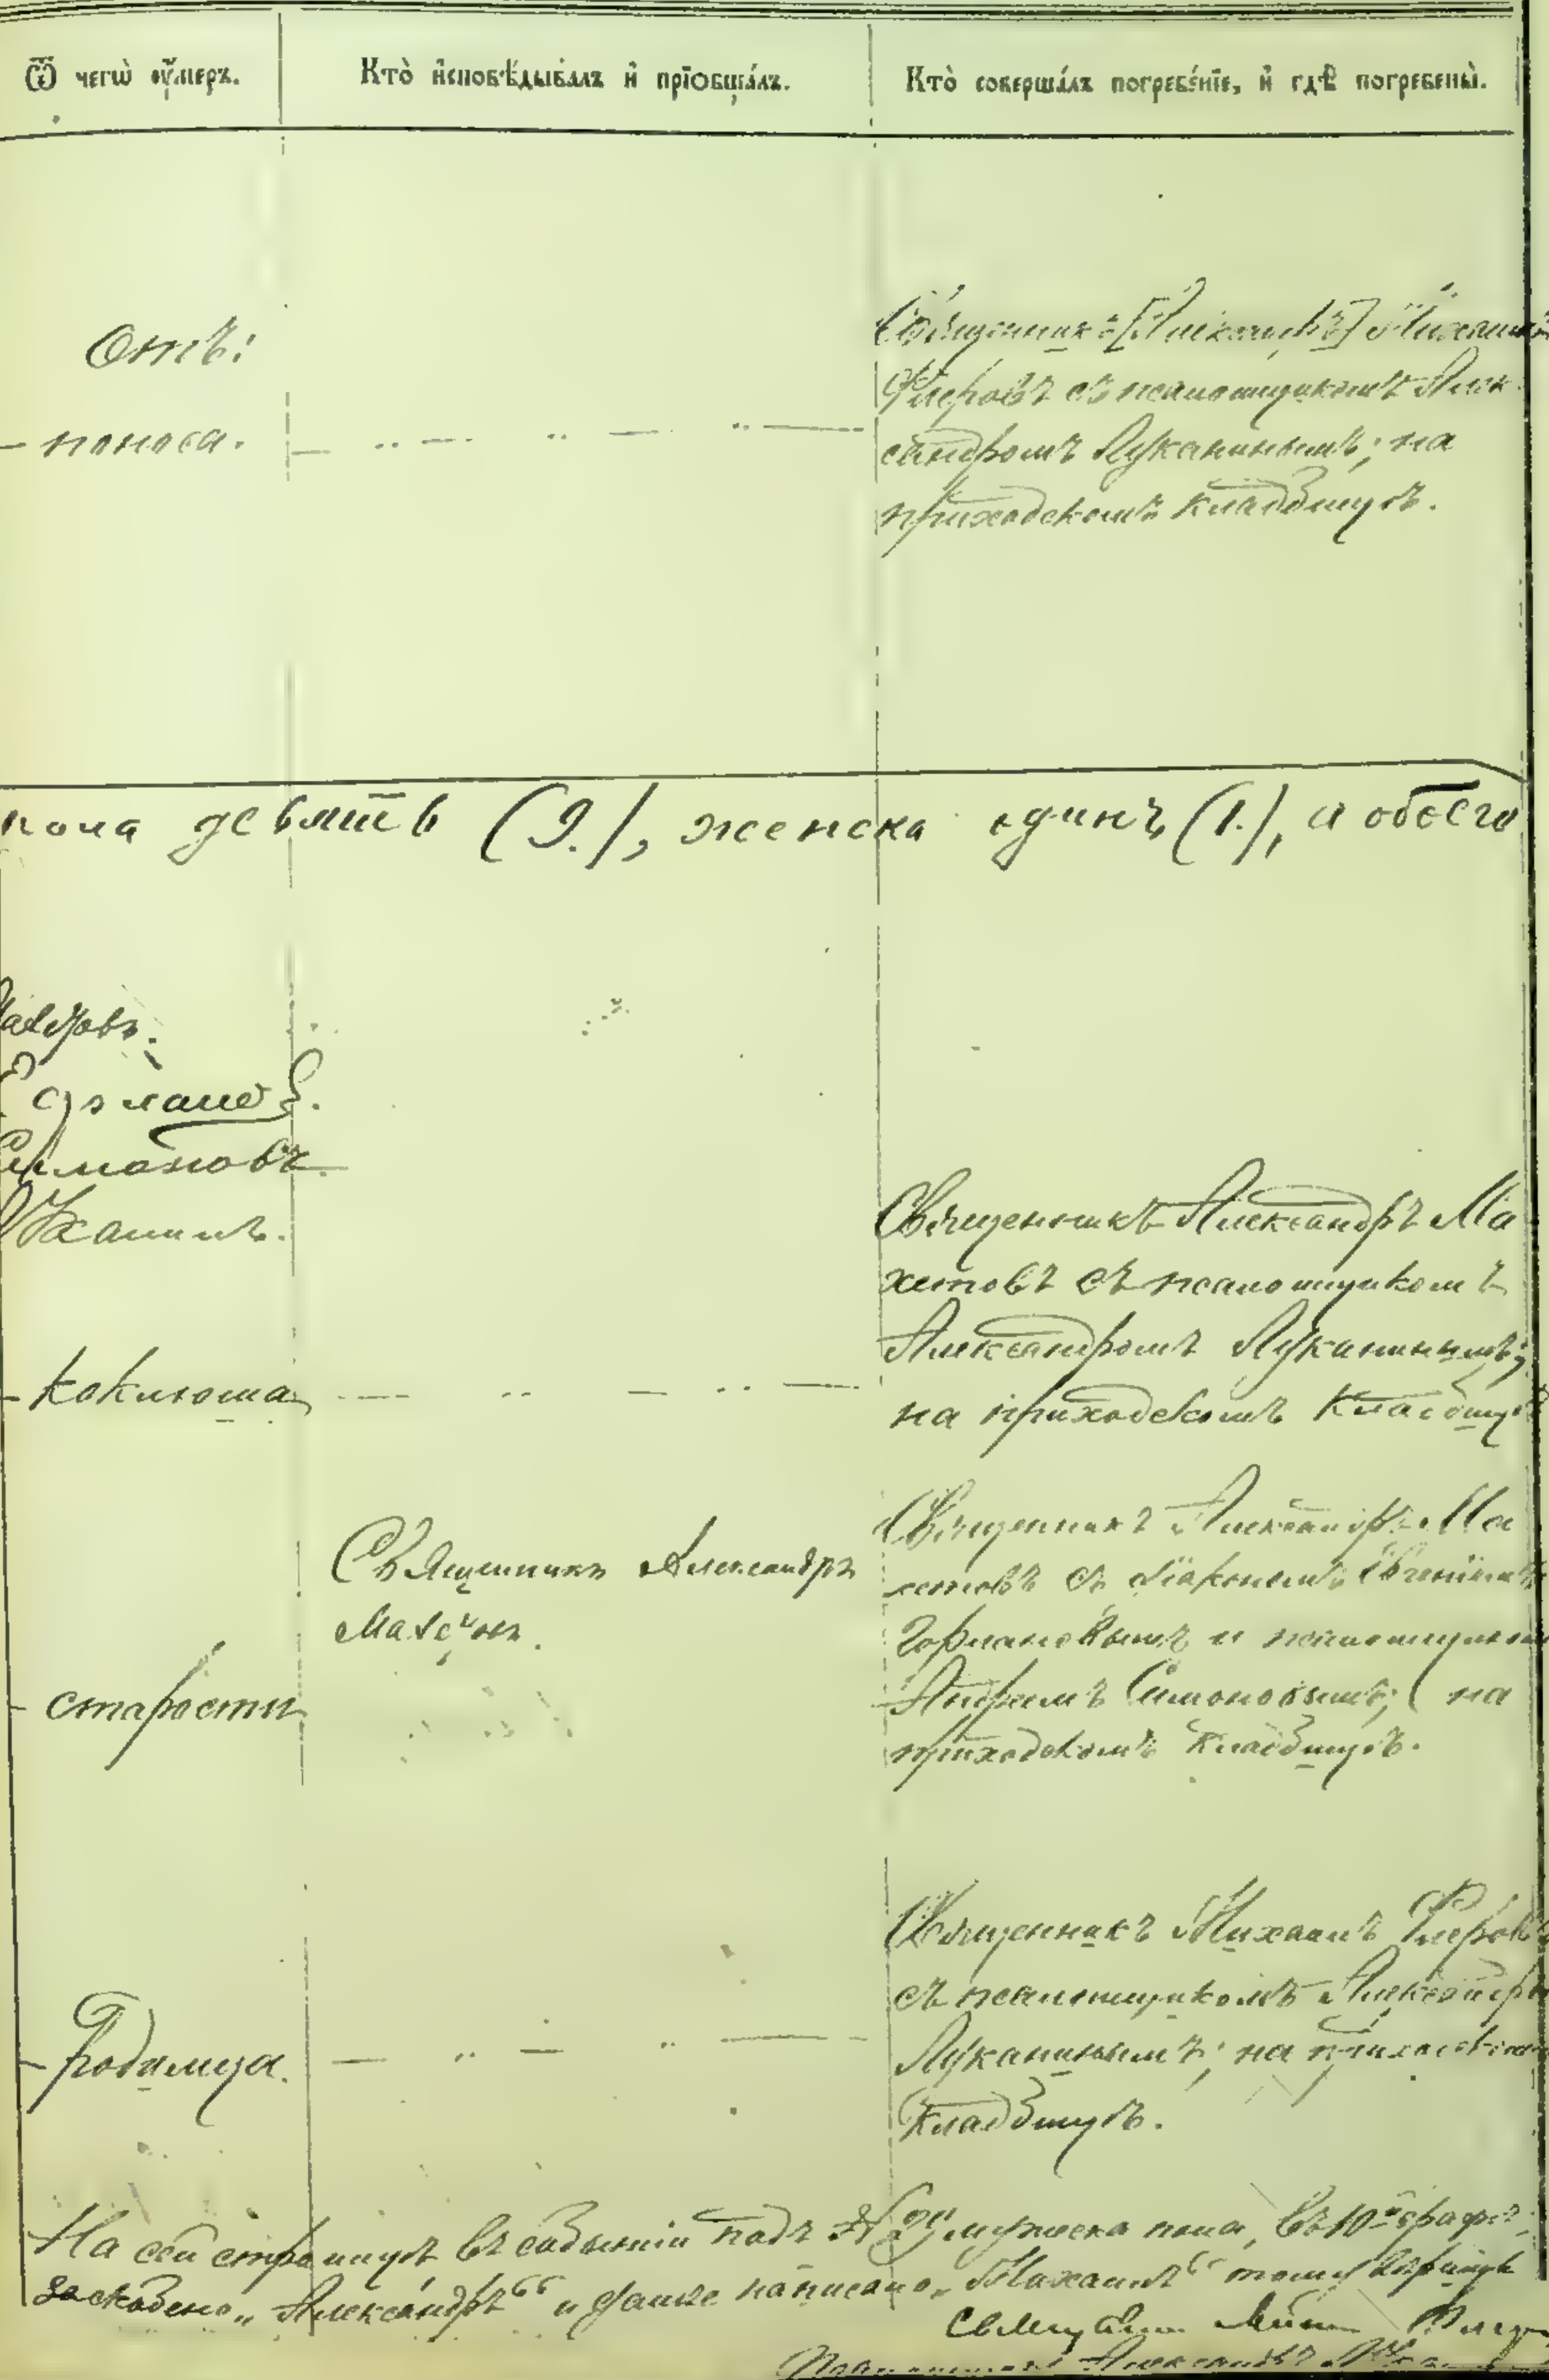 Ѿ чегѡ̀ ᲂу҆́мерх.
Кто̀ и҆сповѣ́дывалъ и҆ прїобща́лъ.
Кто̀ соверша́лъ погребе́нїе, и҆ гдѣ̀ погребены̀.
Отъ:
Священникъ [Александръ] Михаилъ
Флеровъ съ псаломщикомъ Алек
- поноса.
сандромъ Луканинымъ; на
приходскомъ кладбищѣ.
пола девять (9.), женска единъ (1.), а обоего
Симоновъ.
Священникъ Александръ Ма
хетовъ съ псаломщикомъ
Александромъ Луканинымъ;
- коклюша
на приходскомъ кладбищѣ
Священникъ Александръ
Священникъ Александръ Ма
хетовъ съ діакономъ Евгеніемъ
и псаломщикомъ
- старости
Андреемъ Симоновымъ; на
приходскомъ кладбищѣ.
Священникъ Михаилъ Флеровъ
съ псаломщикомъ Александромъ
- Родимца.
Луканинымъ; на приходскомъ
кладбищѣ.
На сей страницѣ, въ событіи подъ № мужеска пола, въ 10-й графѣ,
заскоблено „Александръ“ и далѣе написано „Михаилъ“ тому
Псаломщикъ Александръ